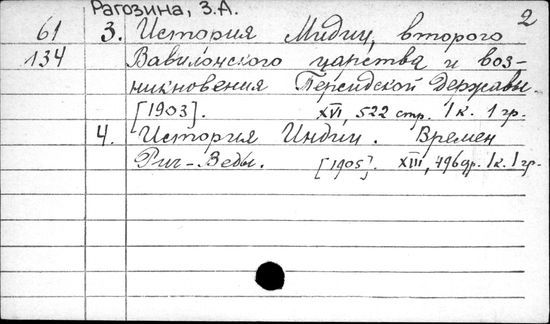 Рагозина, З.А.
2
61 3. История Мидии, второго
134 Вавилонского царства и воз-
никновения Персидской Державы.
[1903]. XVI, 522 стр. 1 к. 1 гр.
4. История Индии. Времен
Риг-Веды. [1905]. XIII, 496 стр. 1 к. 1 гр.